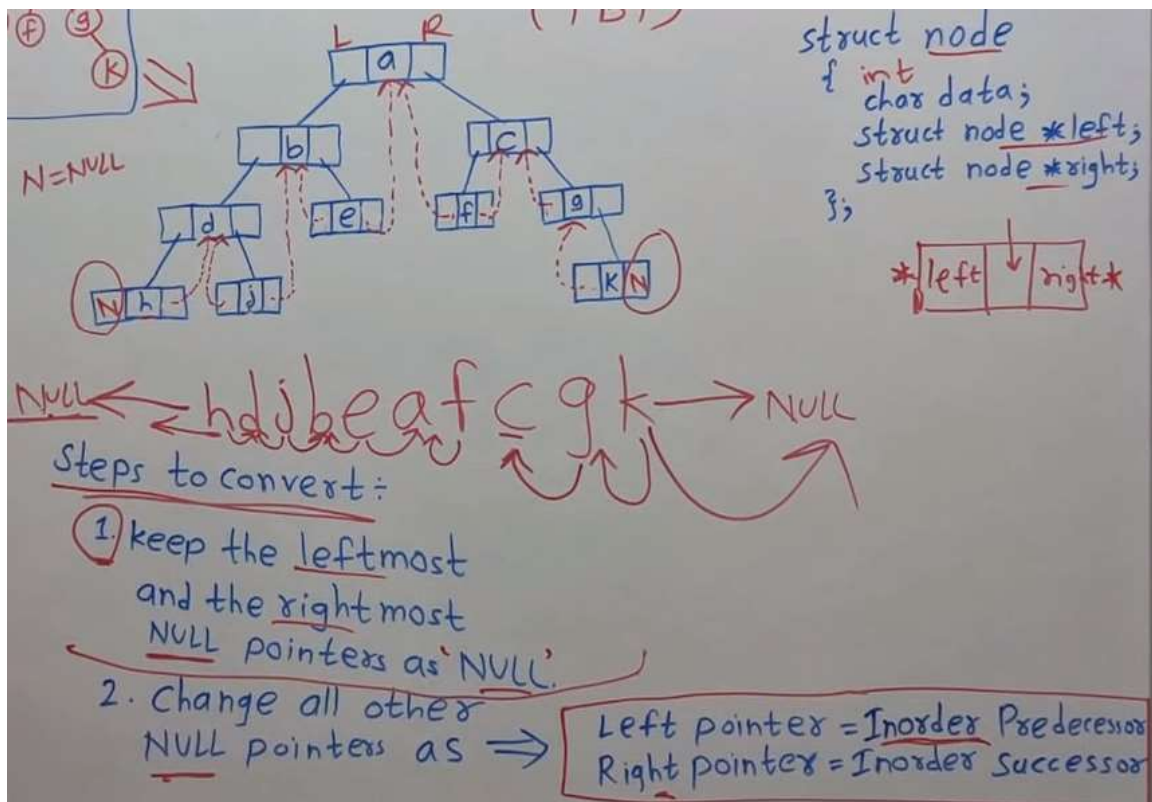 f g
k
(TBT)
L R
a
b c
N=NULL
d e f g
N h j k N
struct node
{ int
char data;
struct node *left;
struct node *right;
};
*left right*
NULL hdjbeafcgk NULL
Steps to convert:
1. keep the leftmost
and the rightmost
NULL pointers as 'NULL'.
2. Change all other
NULL pointers as ⇒
Left pointer = Inorder Predecessor
Right pointer = Inorder Successor